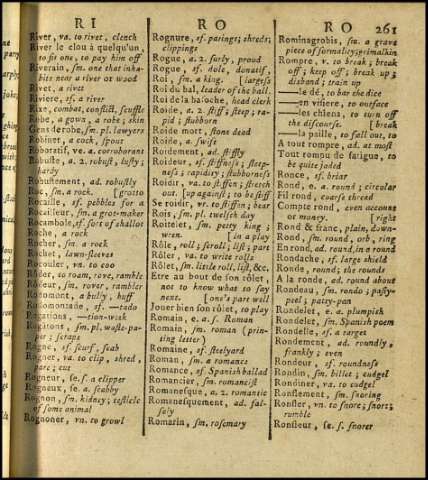 RI
RO
RO 261
River, va. to rivet, clench
River le clou à quelqu'un,
to fit one, to pay him off
Riverain, sm. one that inha-
bits near a river or wood
Rivet, a rivet
Riviere, sf. a river
Rixe, combat, conflict, scuffle
Robe, a gown, a robe; skin
Gens de robe, sm. pl. lawyers
Robinet, a cock, spout
Roboratif, ve. a. corroborant
Robuste, a. 2. robust, lusty;
hardy
Robustement, ad. robustly
Roc, sm. a rock. [grotto
Rocaille, sf. pebbles for a
Rocailleur, sm. a grot-maker
Rocambole, sf. sort of shallot
Roche, a rock
Rocher, sm. a rock
Rochet, lawn-sleeves
Rocouler, vn. to coo
Rôder, to roam, rove, ramble
Rôdeur, sm. rover, rambler
Rodomont, a bully, huff
Rodomontade, sf.
Rogations,
Rogatons, sm. pl. waste-pa-
per; scraps
Rogne, sf. scurf, scab
Rogner, va. to clip, shred,
pare; cut
Rogneur, se. s. a clipper
Rogneux, se. a. scabby
Rognon, sm. kidney; testicle
of some animal
Rognoner, vn. to growl
Rognure, sf. parings; shreds;
clippings
Rogue, a. 2. surly, proud
Rogue, sf. dole, donatif,
Roi, sm. a king. [largess
Roi du bal, leader of the ball.
Roi de la basoche, head clerk
Roide, a. 2. stiff; steep; ra-
pid; stubborn
Roide mort, stone dead
Roide, a. swift
Roidement, ad. stiffly
Roideur, sf. stiffness; steep-
ness; rapidity; stubbornness
Roidir, va. to stiffen; stretch
out. [up against; to be stiff
Se roidir, vr. to stiffen; bear
Rois, sm. pl. twelfth day
Roitelet, sm. petty king;
wren. [in a play
Rôle, roll; scroll; list; part
Rôler, va. to write rolls
Rôlet, sm. little roll, list, &c.
Etre au bout de son rôlet,
not to know what to say
next. [one's part well
Jouer bien son rôlet, to play
Romain, e. a. s. Roman
Romain, sm. roman (prin-
ting letter)
Romaine, sf. steelyard
Roman, sm. a romance
Romance, sf. Spanish ballad
Romancier, sm. romancist
Romanesque, a. 2. romantic
Romanesquement, ad. fal-
sely
Romarin, sm. rosemary
Rominagrobis, sm. a grave
piece of formality; grimalkin
Rompre, v. to break; break
off; keep off; break up;
disband; train up
—le dé, to bar the dice
—en visiere, to outface
—les chiens, to turn off
the discourse. [break
—la paille, to fall out, to
A tout rompre, ad. at most
Tout rompu de fatigue, to
be quite jaded
Ronce, sf. briar
Rond, e. a. round; circular
Fil rond, coarse thread
Compte rond, even account
or money. [right
Rond & franc, plain, down-
Rond, sm. round, orb, ring
En rond, ad. round, in a round
Rondache, sf. large shield
Ronde, round; the rounds
A la ronde, ad. round about
Rondeau, sm. rondo; pasty-
peel; patty-pan
Rondelet, e. a. plumpish
Rondelet, sm. Spanish poem
Rondelle, sf. a target
Rondement, ad. roundly;
frankly; even
Rondeur, sf. roundness
Rondin, sm. billet; cudgel
Rondiner, va. to cudgel
Ronflement, sm. snoring
Ronfler, vn. to snore; snort;
rumble
Ronfleur, se. s. snorer